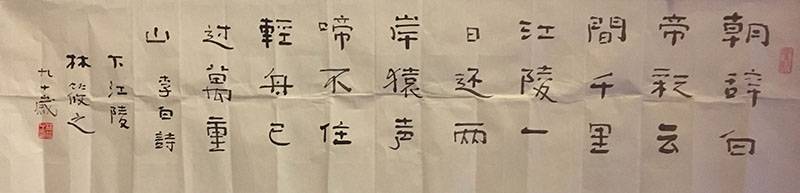 朝辞白
帝彩云
間千里
江陵一
日还两
岸猿声
啼不住
輕舟已
过萬重
山 李白詩
下江陵
林筱之
九十歲